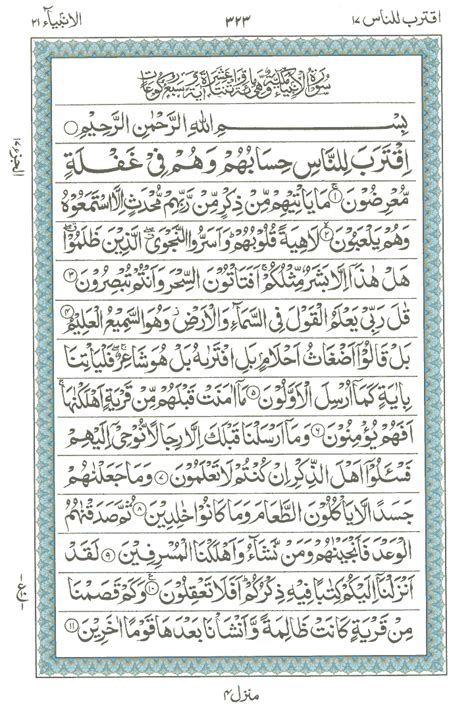 اقترب للناس ١٧
٣٢٣
الانبيآء ٢١
سُوْرَةُ الْاَنْبِيَآءِ مَكِّيَّةٌ وَّهِىَ مِائَةٌ وَّاثْنَتَا عَشَرَةَ اٰيَةً وَّسَبْعُ رُكُوْعَاتٍ
بِسْمِ اللّٰهِ الرَّحْمٰنِ الرَّحِيْمِ
اِقْتَرَبَ لِلنَّاسِ حِسَابُهُمْ وَهُمْ فِىْ غَفْلَةٍ
مُّعْرِضُوْنَ ۚ ١ مَا يَاْتِيْهِمْ مِّنْ ذِكْرٍ مِّنْ رَّبِّهِمْ مُّحْدَثٍ اِلَّا اسْتَمَعُوْهُ
وَهُمْ يَلْعَبُوْنَ ۙ ٢ لَاهِيَةً قُلُوْبُهُمْ ؕ وَاَسَرُّوا النَّجْوَى ۖ الَّذِيْنَ ظَلَمُوْا ۖ
هَلْ هٰذَاۤ اِلَّا بَشَرٌ مِّثْلُكُمْ ۚ اَفَتَاْتُوْنَ السِّحْرَ وَاَنْتُمْ تُبْصِرُوْنَ ٣
قٰلَ رَبِّىْ يَعْلَمُ الْقَوْلَ فِى السَّمَآءِ وَالْاَرْضِ ؗ وَهُوَ السَّمِيْعُ الْعَلِيْمُ ٤
بَلْ قَالُوْۤا اَضْغَاثُ اَحْلَامٍۢ بَلِ افْتَرٰىهُ بَلْ هُوَ شَاعِرٌ ۖۚ فَلْيَاْتِنَا
بِاٰيَةٍ كَمَاۤ اُرْسِلَ الْاَوَّلُوْنَ ٥ مَاۤ اٰمَنَتْ قَبْلَهُمْ مِّنْ قَرْيَةٍ اَهْلَكْنٰهَا ۚ
اَفَهُمْ يُؤْمِنُوْنَ ٦ وَمَاۤ اَرْسَلْنَا قَبْلَكَ اِلَّا رِجَالًا نُّوْحِىْۤ اِلَيْهِمْ
فَسْـَٔلُوْۤا اَهْلَ الذِّكْرِ اِنْ كُنْتُمْ لَا تَعْلَمُوْنَ ٧ وَمَا جَعَلْنٰهُمْ
جَسَدًا لَّا يَاْكُلُوْنَ الطَّعَامَ وَمَا كَانُوْا خٰلِدِيْنَ ٨ ثُمَّ صَدَقْنٰهُمُ
الْوَعْدَ فَاَنْجَيْنٰهُمْ وَمَنْ نَّشَآءُ وَاَهْلَكْنَا الْمُسْرِفِيْنَ ٩ لَقَدْ
اَنْزَلْنَاۤ اِلَيْكُمْ كِتٰبًا فِيْهِ ذِكْرُكُمْ ؕ اَفَلَا تَعْقِلُوْنَ ١٠ وَكَمْ قَصَمْنَا
مِنْ قَرْيَةٍ كَانَتْ ظَالِمَةً وَّاَنْشَاْنَا بَعْدَهَا قَوْمًا اٰخَرِيْنَ ١١
منزل ٤